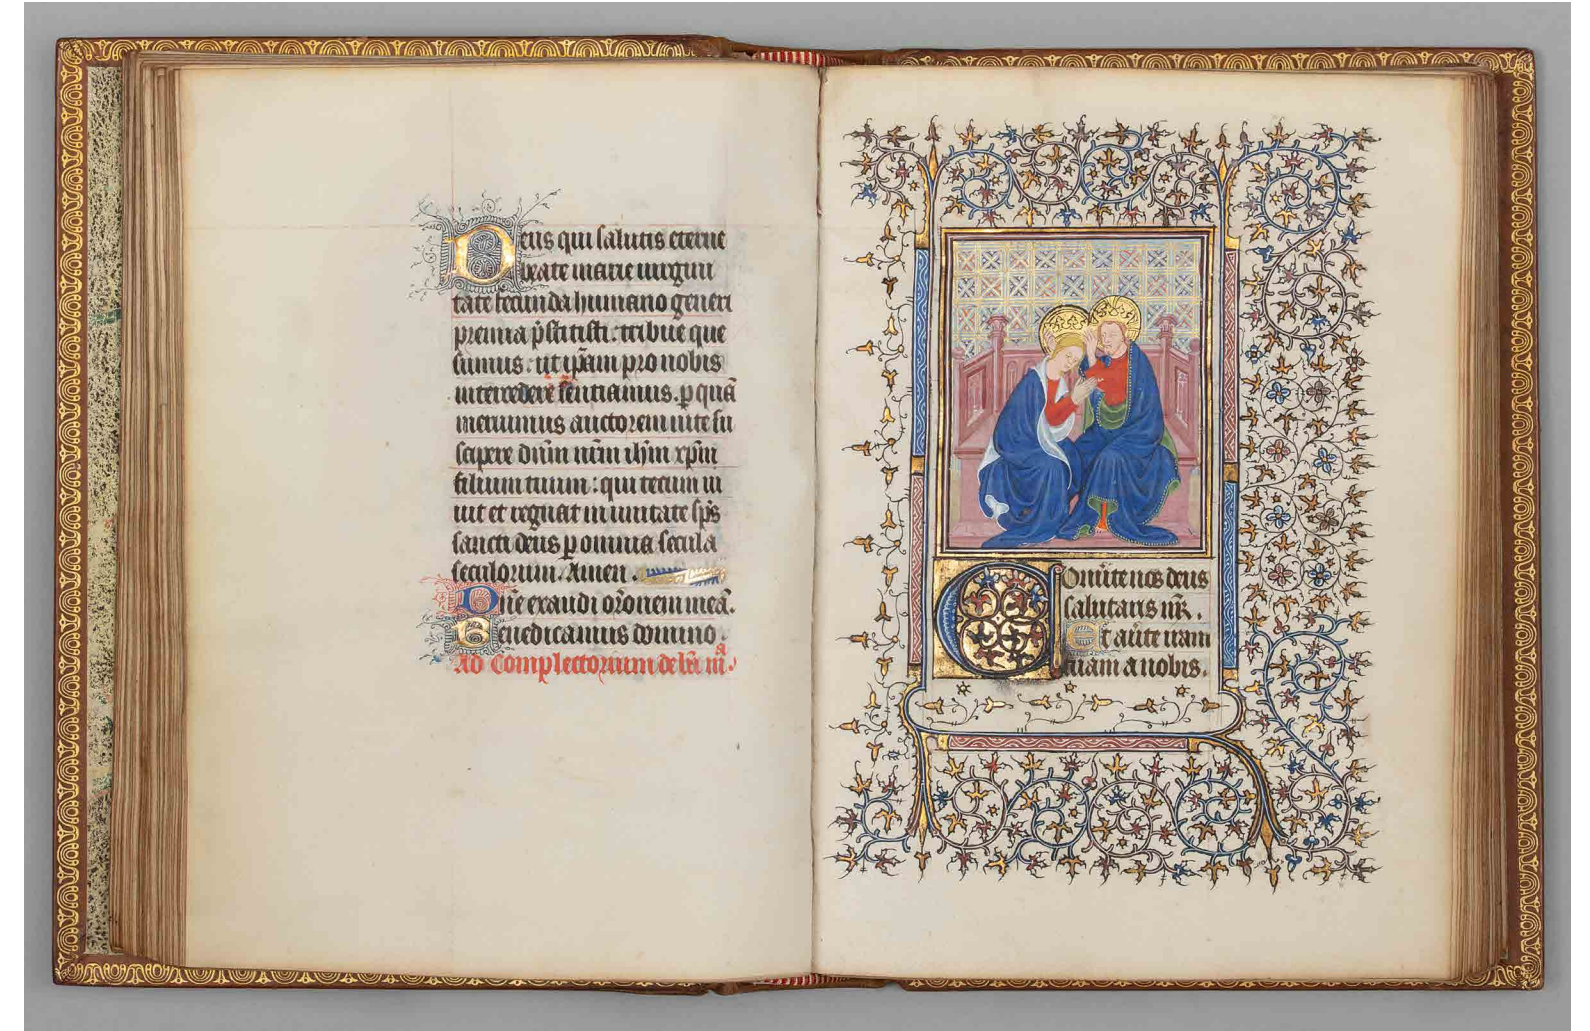 Deus qui salutis eterne
beate marie uirgini
tate fecunda humano generi
premia p̄stitisti : tribue que
sumus : ut ip̄am pro nobis
intercedere sentiamus . p quā
meruimus auctorem uite su
scipere dn̄m nr̄m ihm̄ xp̄m
filium tuum : qui tecum ui
uit et regnat in unitate sp̄s
sancti deus p omnia secula
seculorum . Amen .
Dn̄e exaudi or̄onem meā .
Benedicamus domino .
Ad complectorium de
Conūte nos deus
salutaris nr̄ .
Et aūte iram
tuam a nobis .